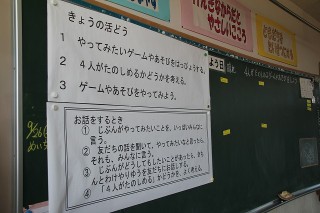 きょうの活どう
1 やってみたいゲームやあそびをはっぴょうする。
2 4人がたのしめるかどうかを考える。
3 ゲームやあそびをやってみよう。
お話をするとき
① じぶんがやってみたいことを、いっぱいみんなに
言う。
② 友だちの話を聞いて、やってみたいなと思ったら、
それも、みんなに言う。
③ じぶんがどうしてもしたいことがあったら、きち
んとわけやりゆうを友だちにお話しする。
④ 「4人がたのしめる」かどうかを、よく考える。
やさしいこころ